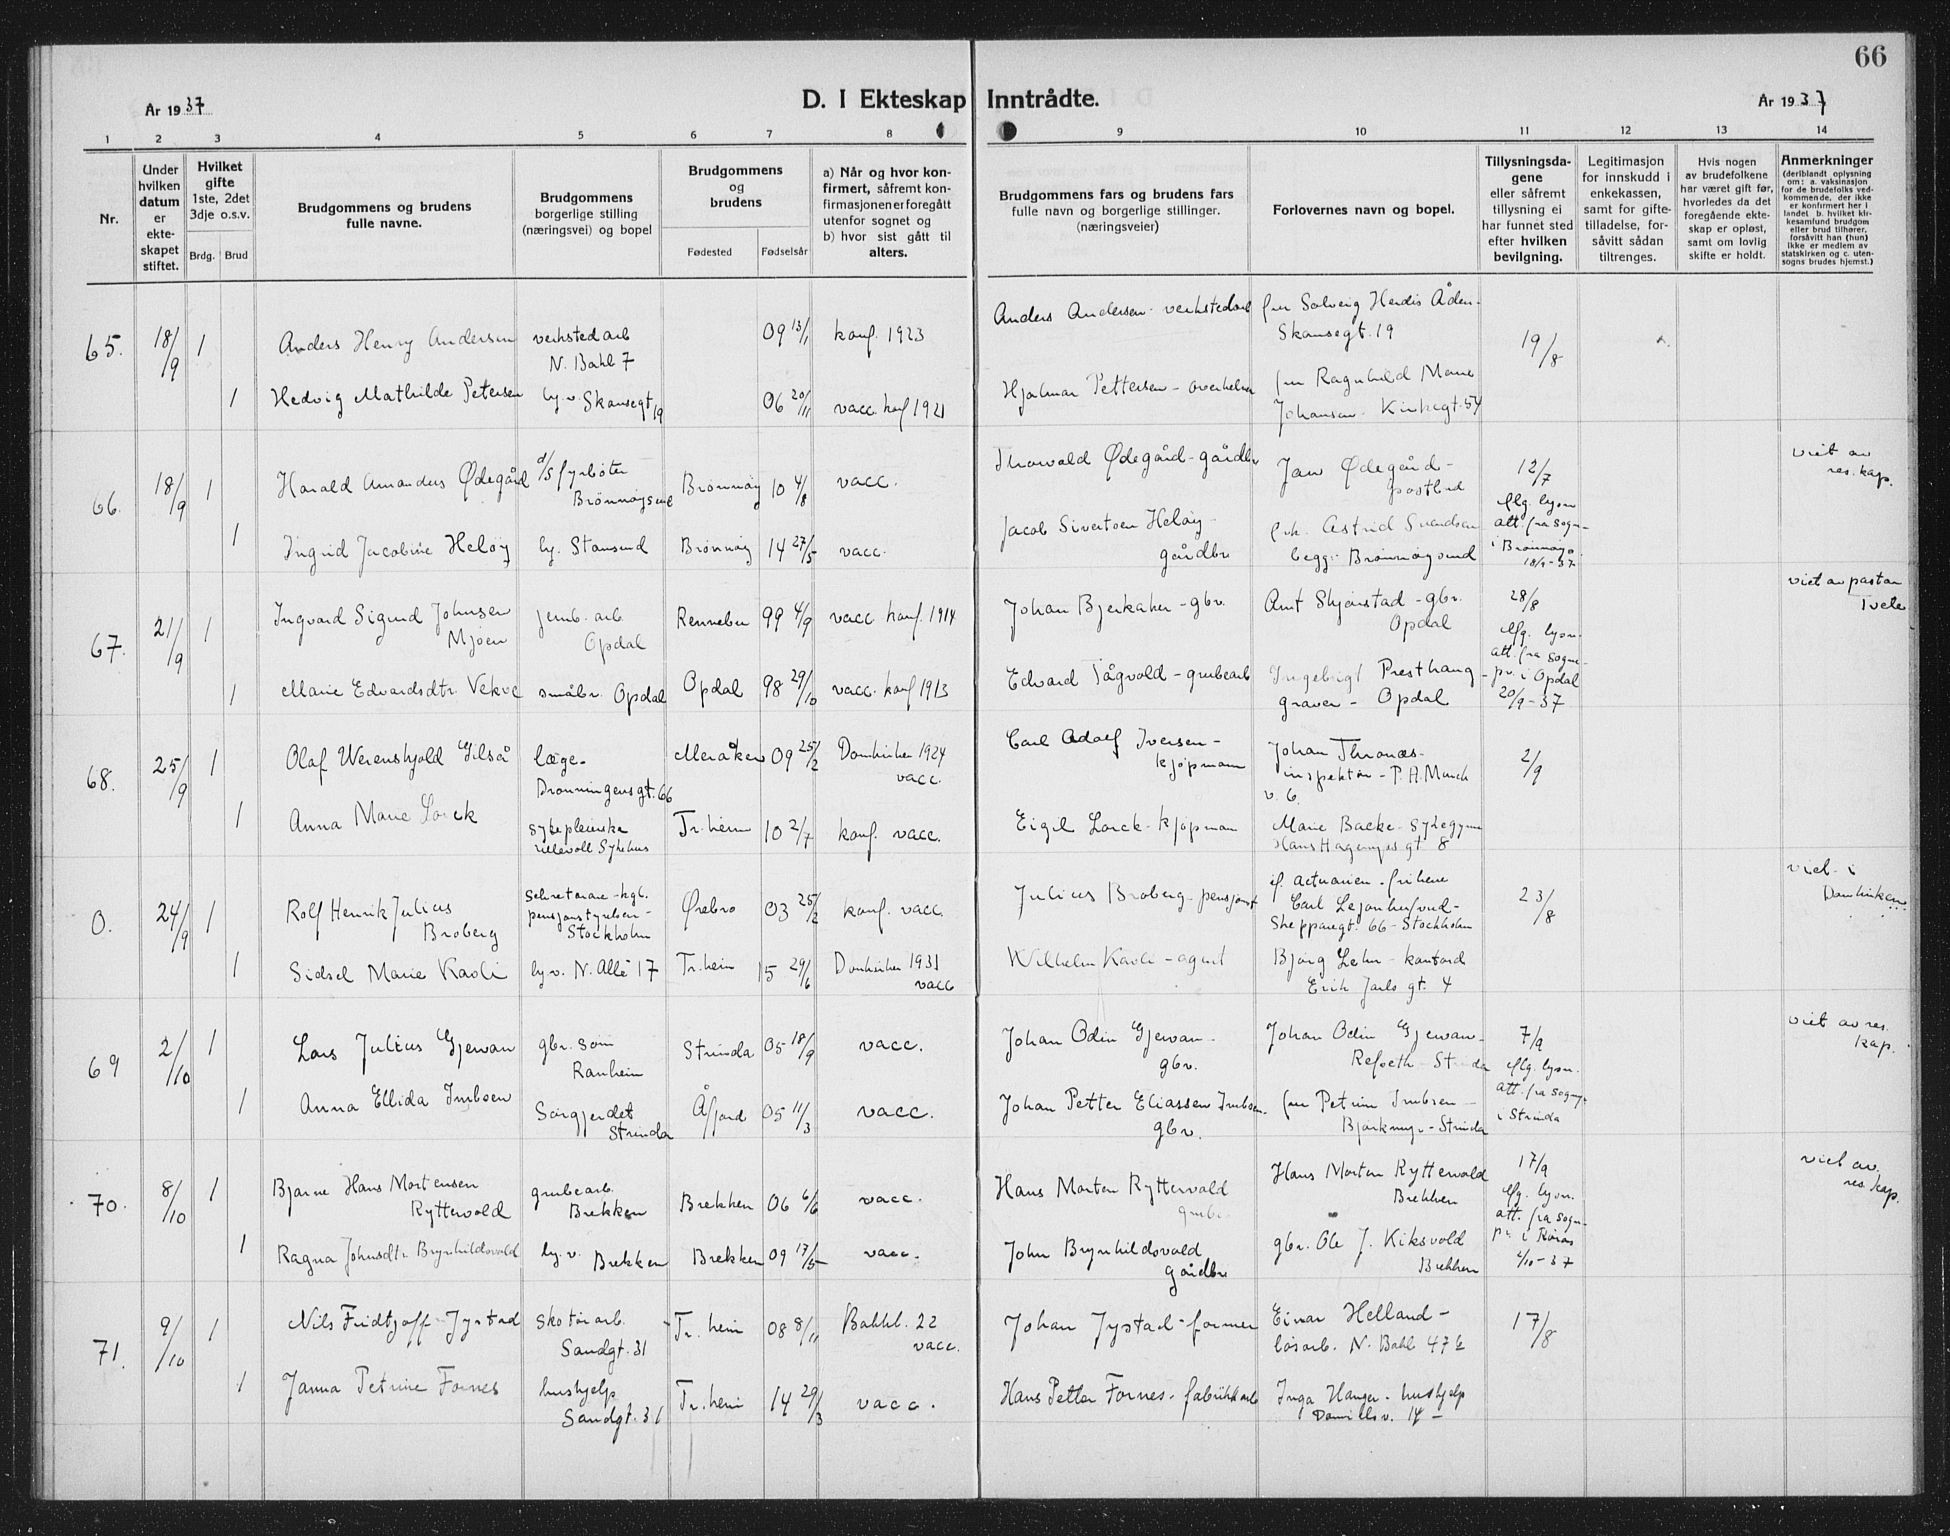 66
År 1937
D. I Ekteskap Inntrådte.
År 1937
1 2 3 4 5 6 7 8 9 10 11 12 13 14
Nr.
Under hvilken datum er ekteskapet stiftet.
Hvilket gifte 1ste, 2det 3dje o.s.v.
Brdg. Brud
Brudgommens og brudens fulle navne.
Brudgommens borgerlige stilling (næringsvei) og bopel
Brudgommens og brudens
Fødested Fødselsår
a) Når og hvor konfirmert, såfremt konfirmasjonen er foregått utenfor sognet og b) hvor sist gått til alters.
Brudgommens fars og brudens fars fulle navn og borgerlige stillinger. (næringsveier)
Forlovernes navn og bopel.
Tillysningsdagene eller såfremt tillysning ei har funnet sted efter hvilken bevilgning.
Legitimasjon for innskudd i enkekassen, samt for giftetilladelse, forsåvitt sådan tiltrenges.
Hvis nogen av brudefolkene har været gift før, hvorledes da det foregående ekteskap er opløst, samt om lovlig skifte er holdt.
Anmerkninger (deriblandt oplysning om: a. vaksinasjon for de brudefolks vedkommende, der ikke er konfirmert her i landet b. hvilket kirkesamfund brudgom eller brud tilhører, forsåvitt han (hun) ikke er medlem av statskirken og c. utensogns brudes hjemst.)
65. 18/9 1 Anders Henry Andersen verkstedarb N. Bakl 7 09 13/1 konf. 1923 Anders Andersen - verkstedarb fru Solveig Herdis Åden- Skansegt. 19 19/8
1 Hedvig Mathilde Petersen hj.v. Skansegt 19 06 20/11 vacc. konf 1921 Hjalmar Pettersen - fru Ragnhild Marie Johansen - Kirkegt. 54
66. 18/9 1 Harald Amandus Ødegård d/s fyrbøter Brønnøysund Brønnøy 10 4/8 vacc. Thorvald Ødegård - gårdbr Jan Ødegård - postbud 12/7 iflg. lysn att. fra sogn- i Brønnøy 18/9-37 viet av res. kap.
1 Ingrid Jacobine Heløy hj. Brønnøy 14 27/5 vacc. Jacob Sivertsen Heløy - gårdbr frk. Astrid Svendsen begge Brønnøysund
67. 21/9 1 Ingvard Sigurd Johnsen Mjøen jernb. arb. Opdal Rennebu 99 4/9 vacc konf. 1914 Johan Bjerkaker - gbr. Arnt Skjørstad - gbr. Opdal 28/8 iflg. lysn- att. fra sogne- pr. i Opdal 20/9-37 viet av pastor Tvete
1 Marie Edvardsdtr. Vekve småbr. Opdal Opdal 98 29/10 vacc. konf 1913 Edvard Vågvold - grubearb Ingebrigt Presthaug - graver - Opdal
68. 25/9 1 Olaf Werenskjold Gilså læge - Dronningensgt. 66 Meråker 09 25/2 Domkirken 1924 vacc. Carl Adolf Iversen - kjøpmann Johan Thronæs - inspektør - P. A. Munch v. 6. 2/9
1 Anna Marie Lorck sykepleierske Ullevoll Sykehus Tr.heim 10 2/7 konf. vacc. Eigil Lorck - kjøpmann Marie Backe - sykegymn Hans Hagerupsgt 8
0. 24/9 1 Rolf Henrik Julius Broberg Sekreterare - kgl. pensjonstyrelsen - Stockholm Ørebro 03 25/2 konf. vacc. Julius Broberg - pensjonist f. actuarien - friherre Carl Lejonhufvud - Skepparegt. 66 - Stockholm 23/8 viet i Domkirken
1 Sidsel Marie Kavli hj.v. N. Alle 17 Tr.heim 15 29/6 Domkirken 1931 vacc Wilhelm Kavli - agent Bjørg Lehn - kontord Erik Jarls gt. 4
69 2/10 1 Lars Julius Gjervan gbr. sønn Ranheim Strinda 05 18/9 vacc. Johan Odin Gjervan - gbr. Johan Odin Gjervan - Refseth - Strinda 7/9 iflg. lysn. att. fra sogn- i Strinda viet av res. kap.
1 Anna Ellida Imbsen Sørgjerdet Strinda Åfjord 05 11/3 vacc. Johan Petter Eliassen Imbsen. gbr. fru Petrine Imbsen - Bjørkmyr - Strinda
70. 8/10 1 Bjarne Hans Mortensen Ryttervold grubearb. Brekken Brekken 06 6/6 vacc. Hans Morten Ryttervold Hans Morten Ryttervold Brekken 17/9 iflg. lysn. att. fra sogn- pr. i Røros 4/10-37 viet av. res. kap.
1 Ragna Johnsdtr. Brynhildsvold hj.v. Brekken Brekken 09 17/5 vacc. John Brynhildsvold Gårdbr gbr. Ole J. Kiksvold Brekken
71. 9/10 1 Nils Fridtjoff Jystad skotøiarb. Sandgt. 31 Tr.heim 08 8/11 Bakkl. 22 vacc. Johan Jystad - former Einar Helland - løsarb. N. Bakl 47 b 17/8
1 Janna Petrine Fornes hushjelp Sandgt. 31 Tr.heim 14 29/3 vacc. Hans Petter Fornes - fabrikkarb Inga Hanger - hushjelp Danillsv. 14 -